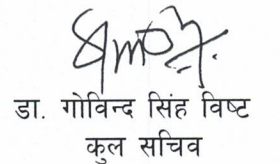 डा. गोविन्द सिंह विष्ट
कुल सचिव